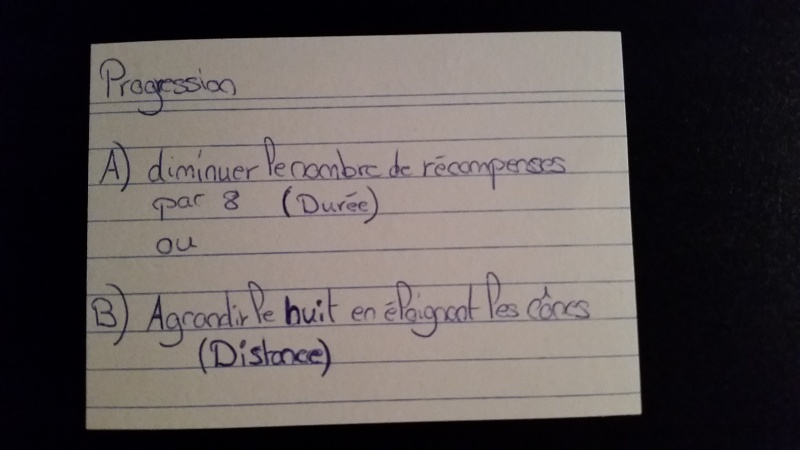 Progression
A) diminuer le nombre de récompenses
par 8 (Durée)
ou
B) Agrandir le huit en éloignant les cônes
(Distance)